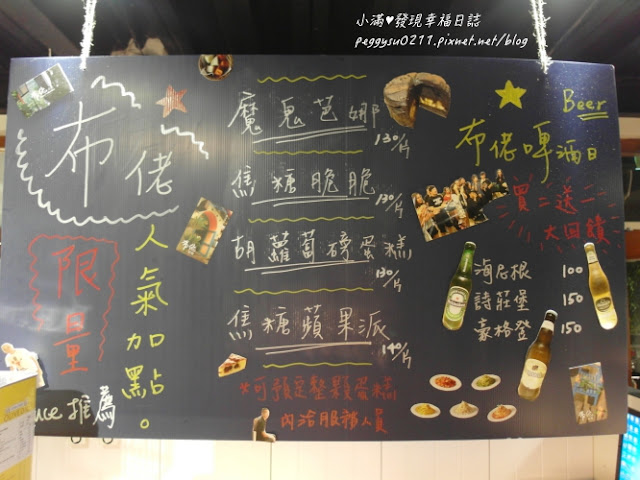 小滿♥發現幸福日誌
peggysu0211.pixnet.net/blog
布佬
限量
人氣加點。
推薦。
魔鬼芭娜
130/片
焦糖脆脆
130/片
胡蘿蔔磚蛋糕
130/片
焦糖蘋果派
140/片
*可預定整顆蛋糕
內洽服務人員
Beer
布佬啤酒日
買二送一
大回饋
海尼根 100
詩莊堡 150
豪格登 150